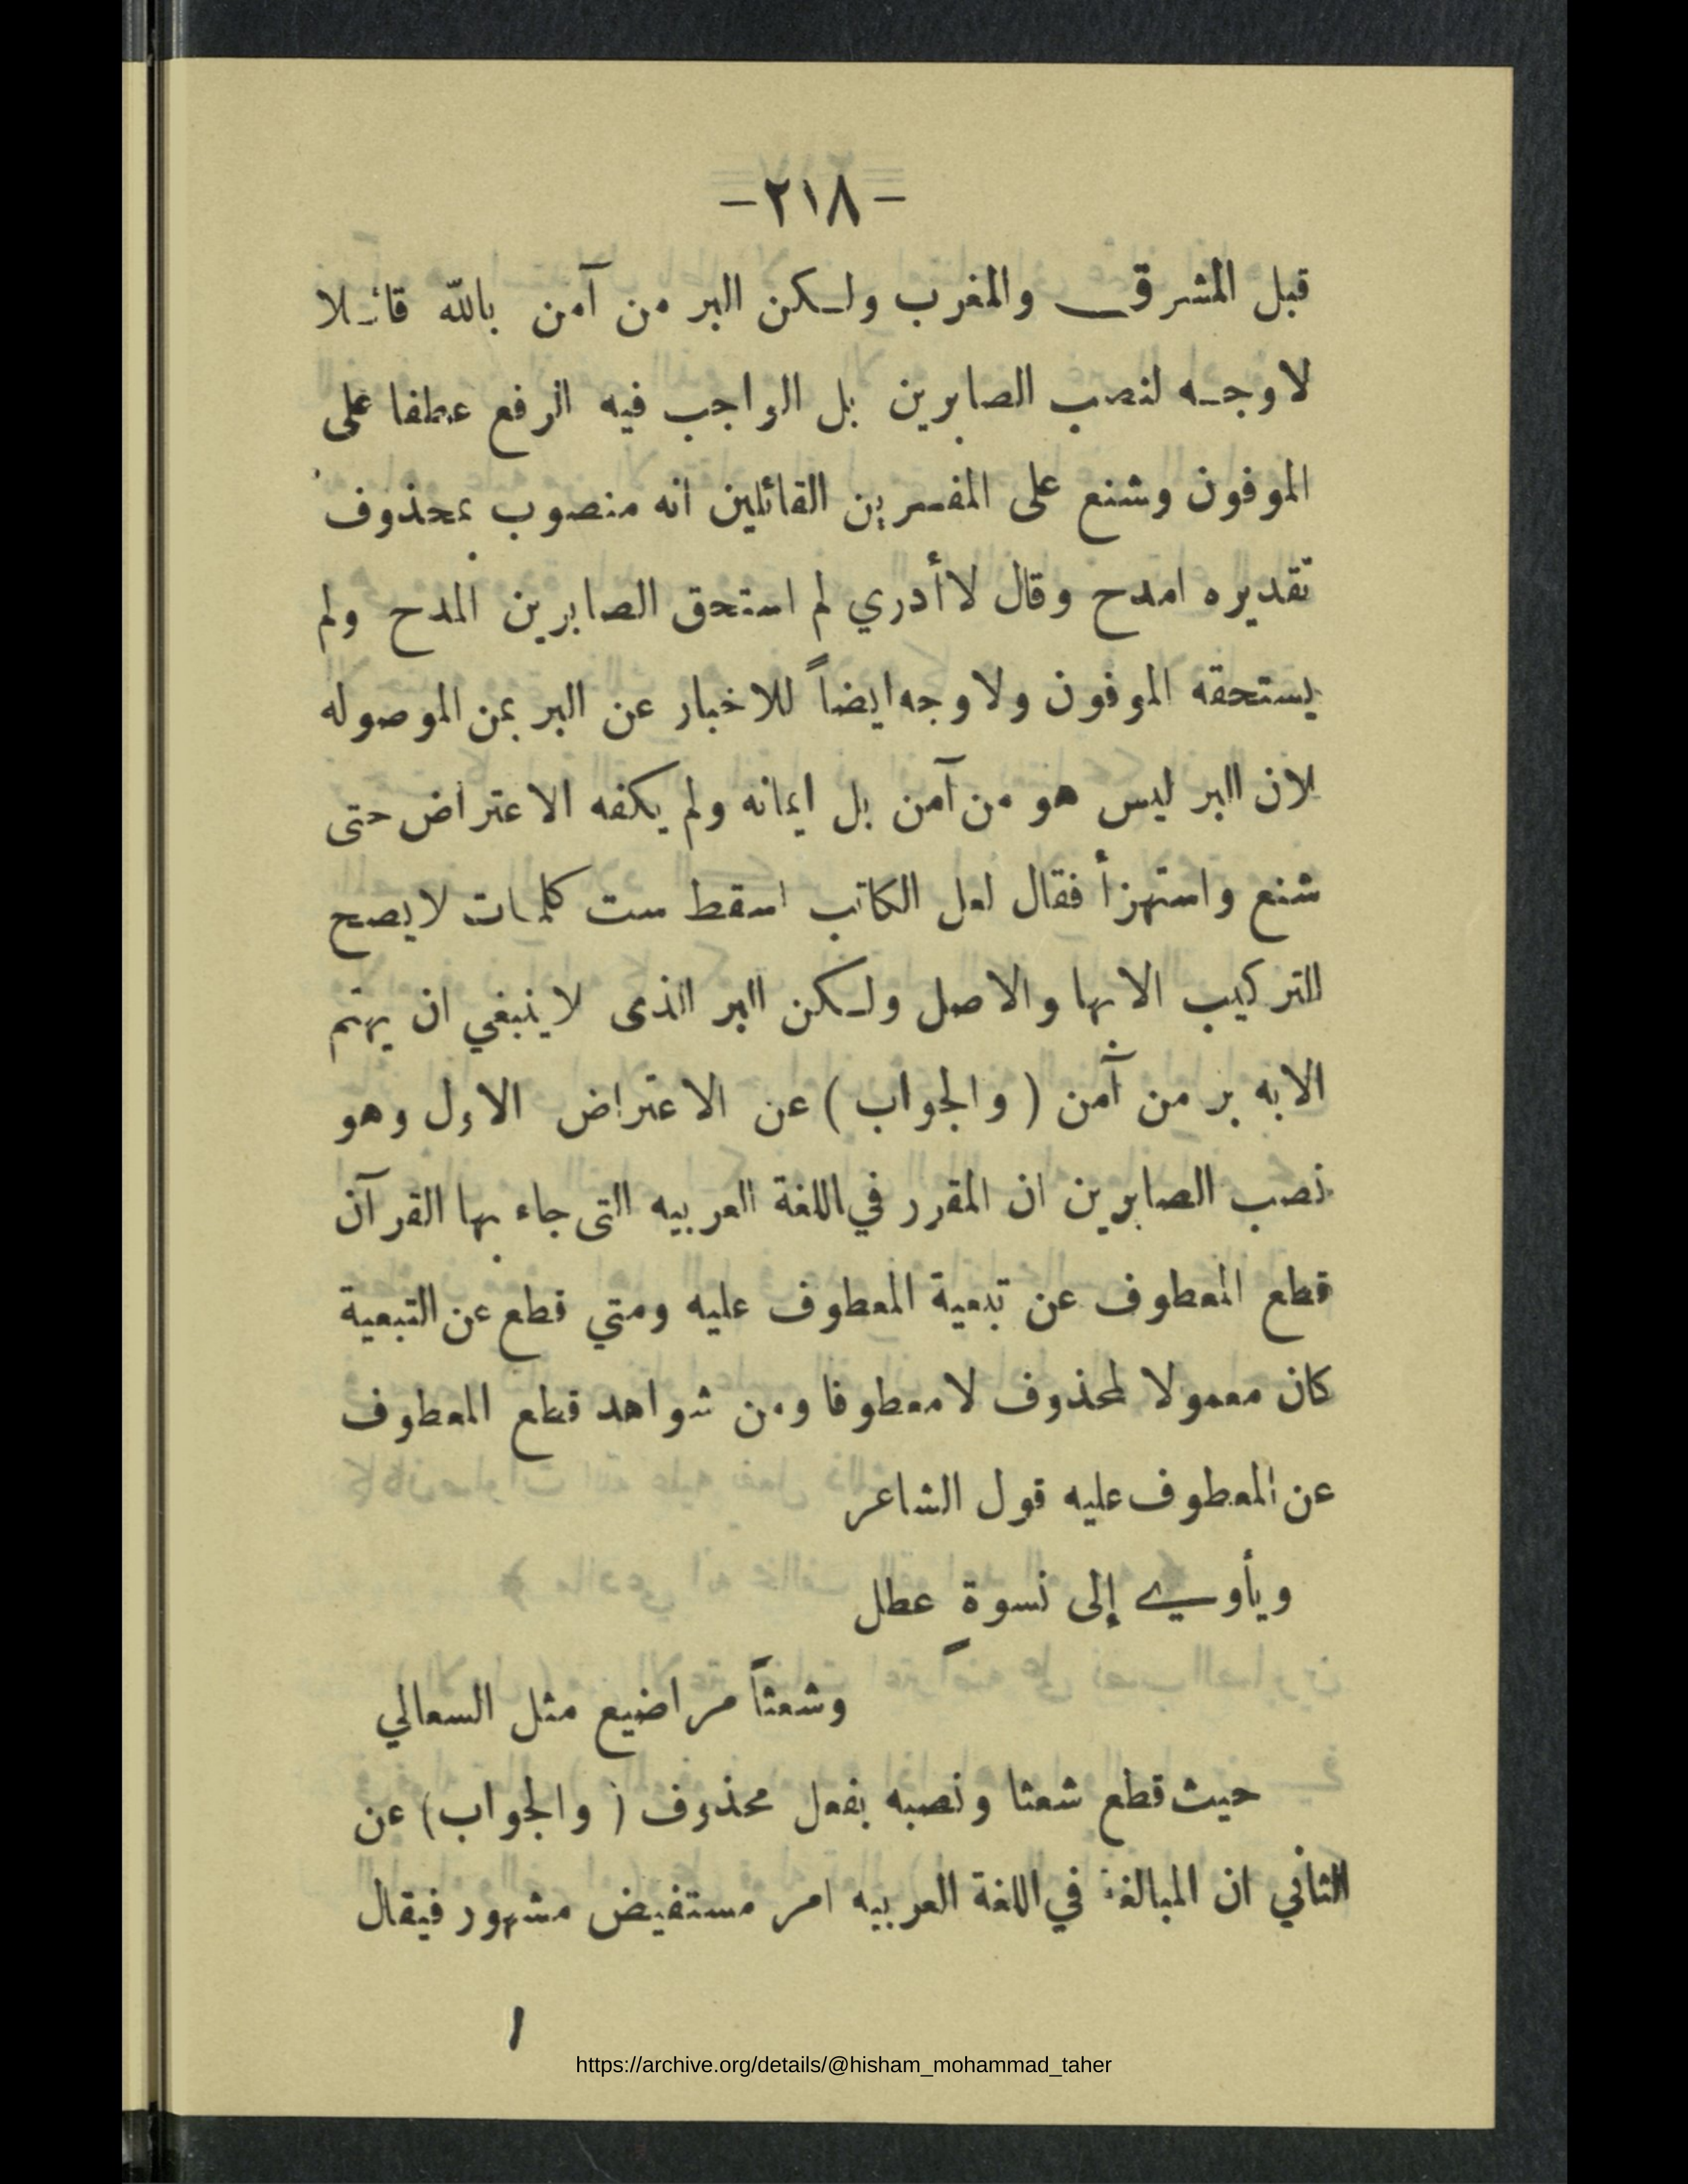 -٢١٨-
قبل المشرق والمغرب ولكن البر من آمن بالله قائلا
لاوجه لنصب الصابرين بل الواجب فيه الرفع عطفا على
الموفون وشنع على المفسرين القائلين انه منصوب بمحذوف
تقديره امدح وقال لاأدري لم استحق الصابرين المدح ولم
يستحقه الموفون ولاوجه ايضاً للاخبار عن البر بمن الموصوله
لان البر ليس هو من آمن بل ايمانه ولم يكفه الاعتراض حتى
شنع واستهزأ فقال لعل الكاتب اسقط ست كلمات لايصح
التركيب الابها والاصل ولكن البر الذى لاينبغي ان يهتم
الابه بر من آمن ( والجواب ) عن الاعتراض الاول وهو
نصب الصابرين ان المقرر في اللغة العربيه التى جاء بها القرآن
قطع المعطوف عن تبعية المعطوف عليه ومتي قطع عن التبعية
كان معمولا لمحذوف لامعطوفا ومن شواهد قطع المعطوف
عن المعطوف عليه قول الشاعر
ويأوي إلى نسوةٍ عطل
وشعثاً مراضيع مثل السعالي
حيث قطع شعثا ونصبه بفعل محذوف ( والجواب ) عن
الثاني ان المبالغة في اللغة العربيه امر مستفيض مشهور فيقال
https://archive.org/details/@hisham_mohammad_taher